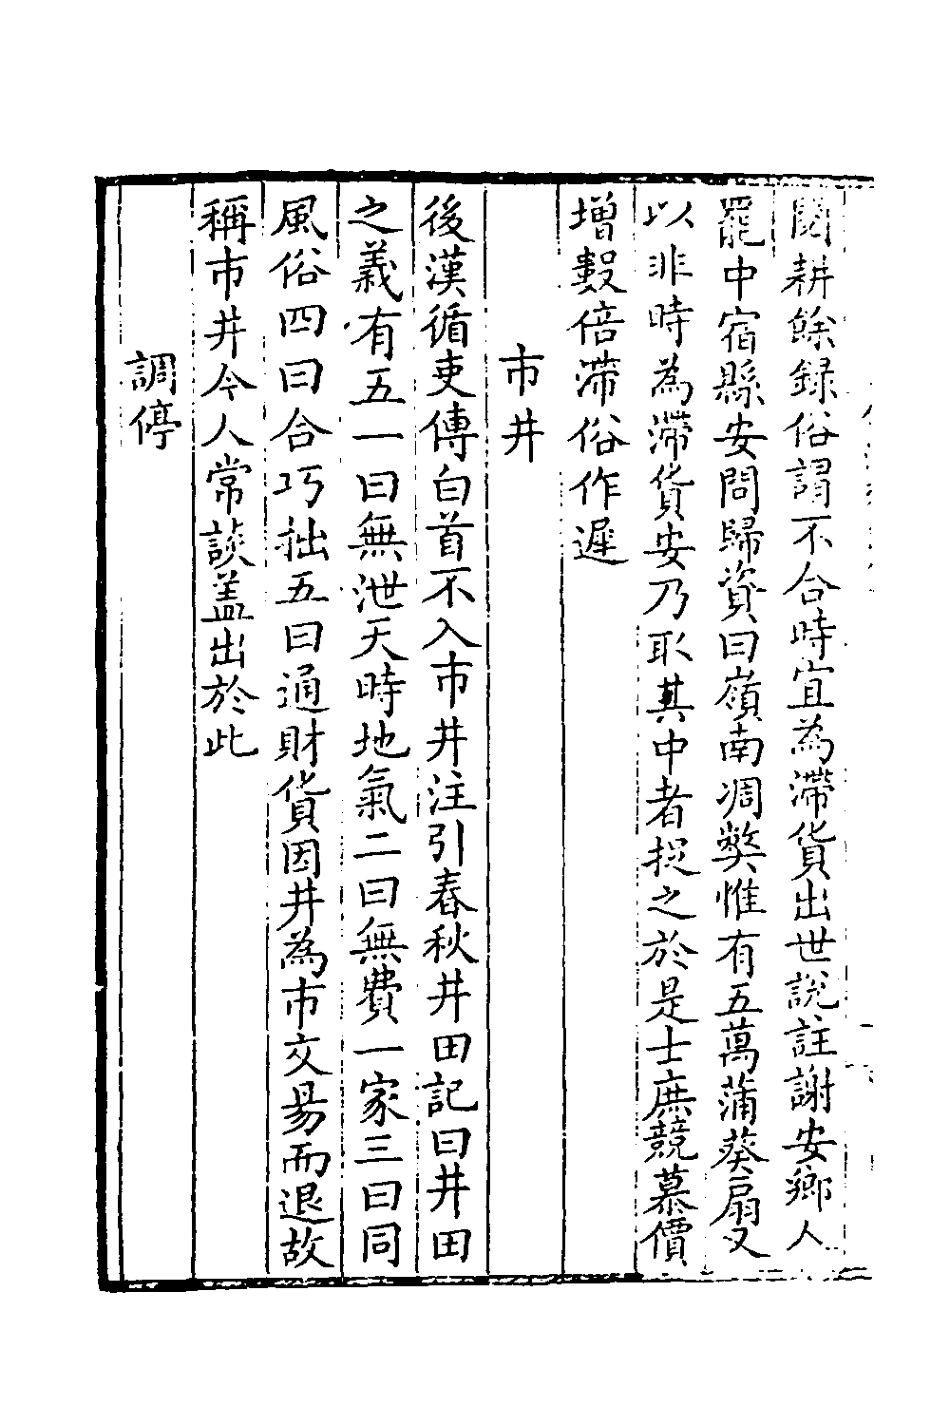 閱耕餘録俗謂不合時宜為滯貨出世說註謝安鄉人
罷中宿縣安問歸資曰嶺南凋弊惟有五萬蒲葵扇又
以非時為滯貨安乃取其中者捉之於是士庶競慕價
増數倍滯俗作遲
市井
後漢循吏傳白首不入市井注引春秋井田記曰井田
之義有五一曰無泄天時地氣二曰無費一家三曰同
風俗四曰合巧拙五曰通財貨因井為市交昜而退故
稱市井今人常談盖出於此
調停